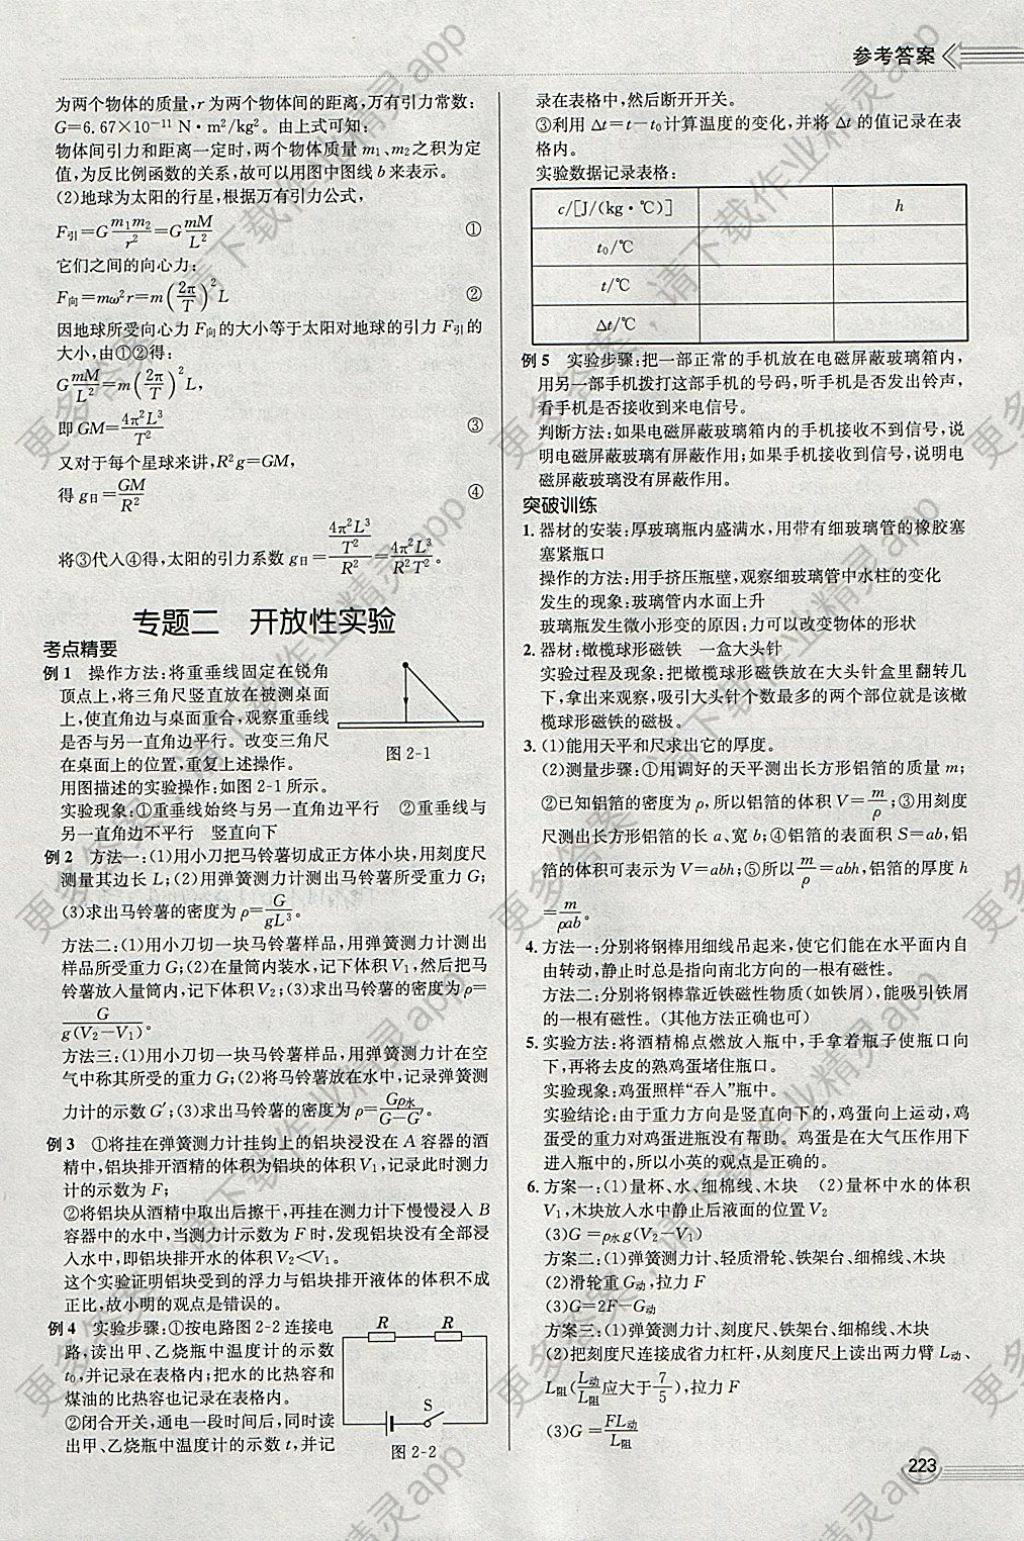 参考答案
为两个物体的质量,r为两个物体间的距离,万有引力常数:
G=6.67×10⁻¹¹ N·m²/kg²。由上式可知:
物体间引力和距离一定时,两个物体质量 m₁、m₂之积为定
值,为反比例函数的关系,故可以用图中图线b来表示。
(2)地球为太阳的行星,根据万有引力公式,
F引=G m₁m₂/r²=G mM/L² ①
它们之间的向心力:
F向=mω²r=m(2π/T)²L ②
因地球所受向心力 F向的大小等于太阳对地球的引力 F引的
大小,由①②得:
G mM/L²=m(2π/T)²L,
即 GM=4π²L³/T² ③
又对于每个星球来讲,R²g=GM,
得 g日=GM/R² ④
将③代入④得,太阳的引力系数 g日=(4π²L³/T²)/R²=4π²L³/R²T²。
专题二 开放性实验
考点精要
例1 操作方法:将重垂线固定在锐角
顶点上,将三角尺竖直放在被测桌面
上,使直角边与桌面重合,观察重垂线
是否与另一直角边平行。改变三角尺
在桌面上的位置,重复上述操作。
图 2-1
用图描述的实验操作:如图2-1所示。
实验现象:①重垂线始终与另一直角边平行 ②重垂线与
另一直角边不平行 竖直向下
例2 方法一:(1)用小刀把马铃薯切成正方体小块,用刻度尺
测量其边长L;(2)用弹簧测力计测出马铃薯所受重力G;
(3)求出马铃薯的密度为ρ=G/gL³。
方法二:(1)用小刀切一块马铃薯样品,用弹簧测力计测出
样品所受重力G;(2)在量筒内装水,记下体积V₁,然后把马
铃薯放人量筒内,记下体积V₂;(3)求出马铃薯的密度为ρ=
G/g(V₂-V₁)。
方法三:(1)用小刀切一块马铃薯样品,用弹簧测力计在空
气中称其所受的重力G;(2)将马铃薯放在水中,记录弹簧测
力计的示数G′;(3)求出马铃薯的密度为ρ=Gρ水/G-G′。
例3 ①将挂在弹簧测力计挂钩上的铝块浸没在A容器的酒
精中,铝块排开酒精的体积为铝块的体积V₁,记录此时测力
计的示数为F;
②将铝块从酒精中取出后擦干,再挂在测力计下慢慢浸人B
容器中的水中,当测力计示数为F时,发现铝块没有全部浸
人水中,即铝块排开水的体积V₂<V₁。
这个实验证明铝块受到的浮力与铝块排开液体的体积不成
正比,故小明的观点是错误的。
例4 实验步骤:①按电路图2-2连接电
路,读出甲、乙烧瓶中温度计的示数
t₀,并记录在表格内;把水的比热容和
煤油的比热容也记录在表格内。
②闭合开关,通电一段时间后,同时读
出甲、乙烧瓶中温度计的示数t,并记
R R
S
图 2-2
录在表格中,然后断开开关。
③利用 Δt=t-t₀计算温度的变化,并将 Δt 的值记录在表
格内。
实验数据记录表格:
c/[J/(kg·℃)] h
t₀/℃
t/℃
Δt/℃
例5 实验步骤:把一部正常的手机放在电磁屏蔽玻璃箱内,
用另一部手机拨打这部手机的号码,听手机是否发出铃声,
看手机是否接收到来电信号。
判断方法:如果电磁屏蔽玻璃箱内的手机接收不到信号,说
明电磁屏蔽玻璃有屏蔽作用;如果手机接收到信号,说明电
磁屏蔽玻璃没有屏蔽作用。
突破训练
1. 器材的安装:厚玻璃瓶内盛满水,用带有细玻璃管的橡胶塞
塞紧瓶口
操作的方法:用手挤压瓶壁,观察细玻璃管中水柱的变化
发生的现象:玻璃管内水面上升
玻璃瓶发生微小形变的原因:力可以改变物体的形状
2. 器材:橄榄球形磁铁 一盒大头针
实验过程及现象:把橄榄球形磁铁放在大头针盒里翻转几
下,拿出来观察,吸引大头针个数最多的两个部位就是该橄
榄球形磁铁的磁极。
3. (1)能用天平和尺求出它的厚度。
(2)测量步骤:①用调好的天平测出长方形铝箔的质量m;
②已知铝箔的密度为ρ,所以铝箔的体积V=m/ρ;③用刻度
尺测出长方形铝箔的长a、宽b;④铝箔的表面积S=ab,铝
箔的体积可表示为V=abh;⑤所以m/ρ=abh,铝箔的厚度h
=m/ρab。
4. 方法一:分别将钢棒用细线吊起来,使它们能在水平面内自
由转动,静止时总是指向南北方向的一根有磁性。
方法二:分别将钢棒靠近铁磁性物质(如铁屑),能吸引铁屑
的一根有磁性。(其他方法正确也可)
5. 实验方法:将酒精棉点燃放入瓶中,手拿着瓶子使瓶口向
下,再将去皮的熟鸡蛋堵住瓶口。
实验现象:鸡蛋照样“吞人”瓶中。
实验结论:由于重力方向是竖直向下的,鸡蛋向上运动,鸡
蛋受的重力对鸡蛋进瓶没有帮助。鸡蛋是在大气压作用下
进入瓶中的,所以小英的观点是正确的。
6. 方案一:(1)量杯、水、细棉线、木块 (2)量杯中水的体积
V₁,木块放人水中静止后液面的位置V₂
(3)G=ρ水g(V₂-V₁)
方案二:(1)弹簧测力计、轻质滑轮、铁架台、细棉线、木块
(2)滑轮重G动,拉力F
(3)G=2F-G动
方案三:(1)弹簧测力计、刻度尺、铁架台、细棉线、木块
(2)把刻度尺连接成省力杠杆,从刻度尺上读出两力臂 L动、
L阻(L动/L阻应大于7/5),拉力F
(3)G=FL动/L阻
223
更多答案,请下载作业精灵app